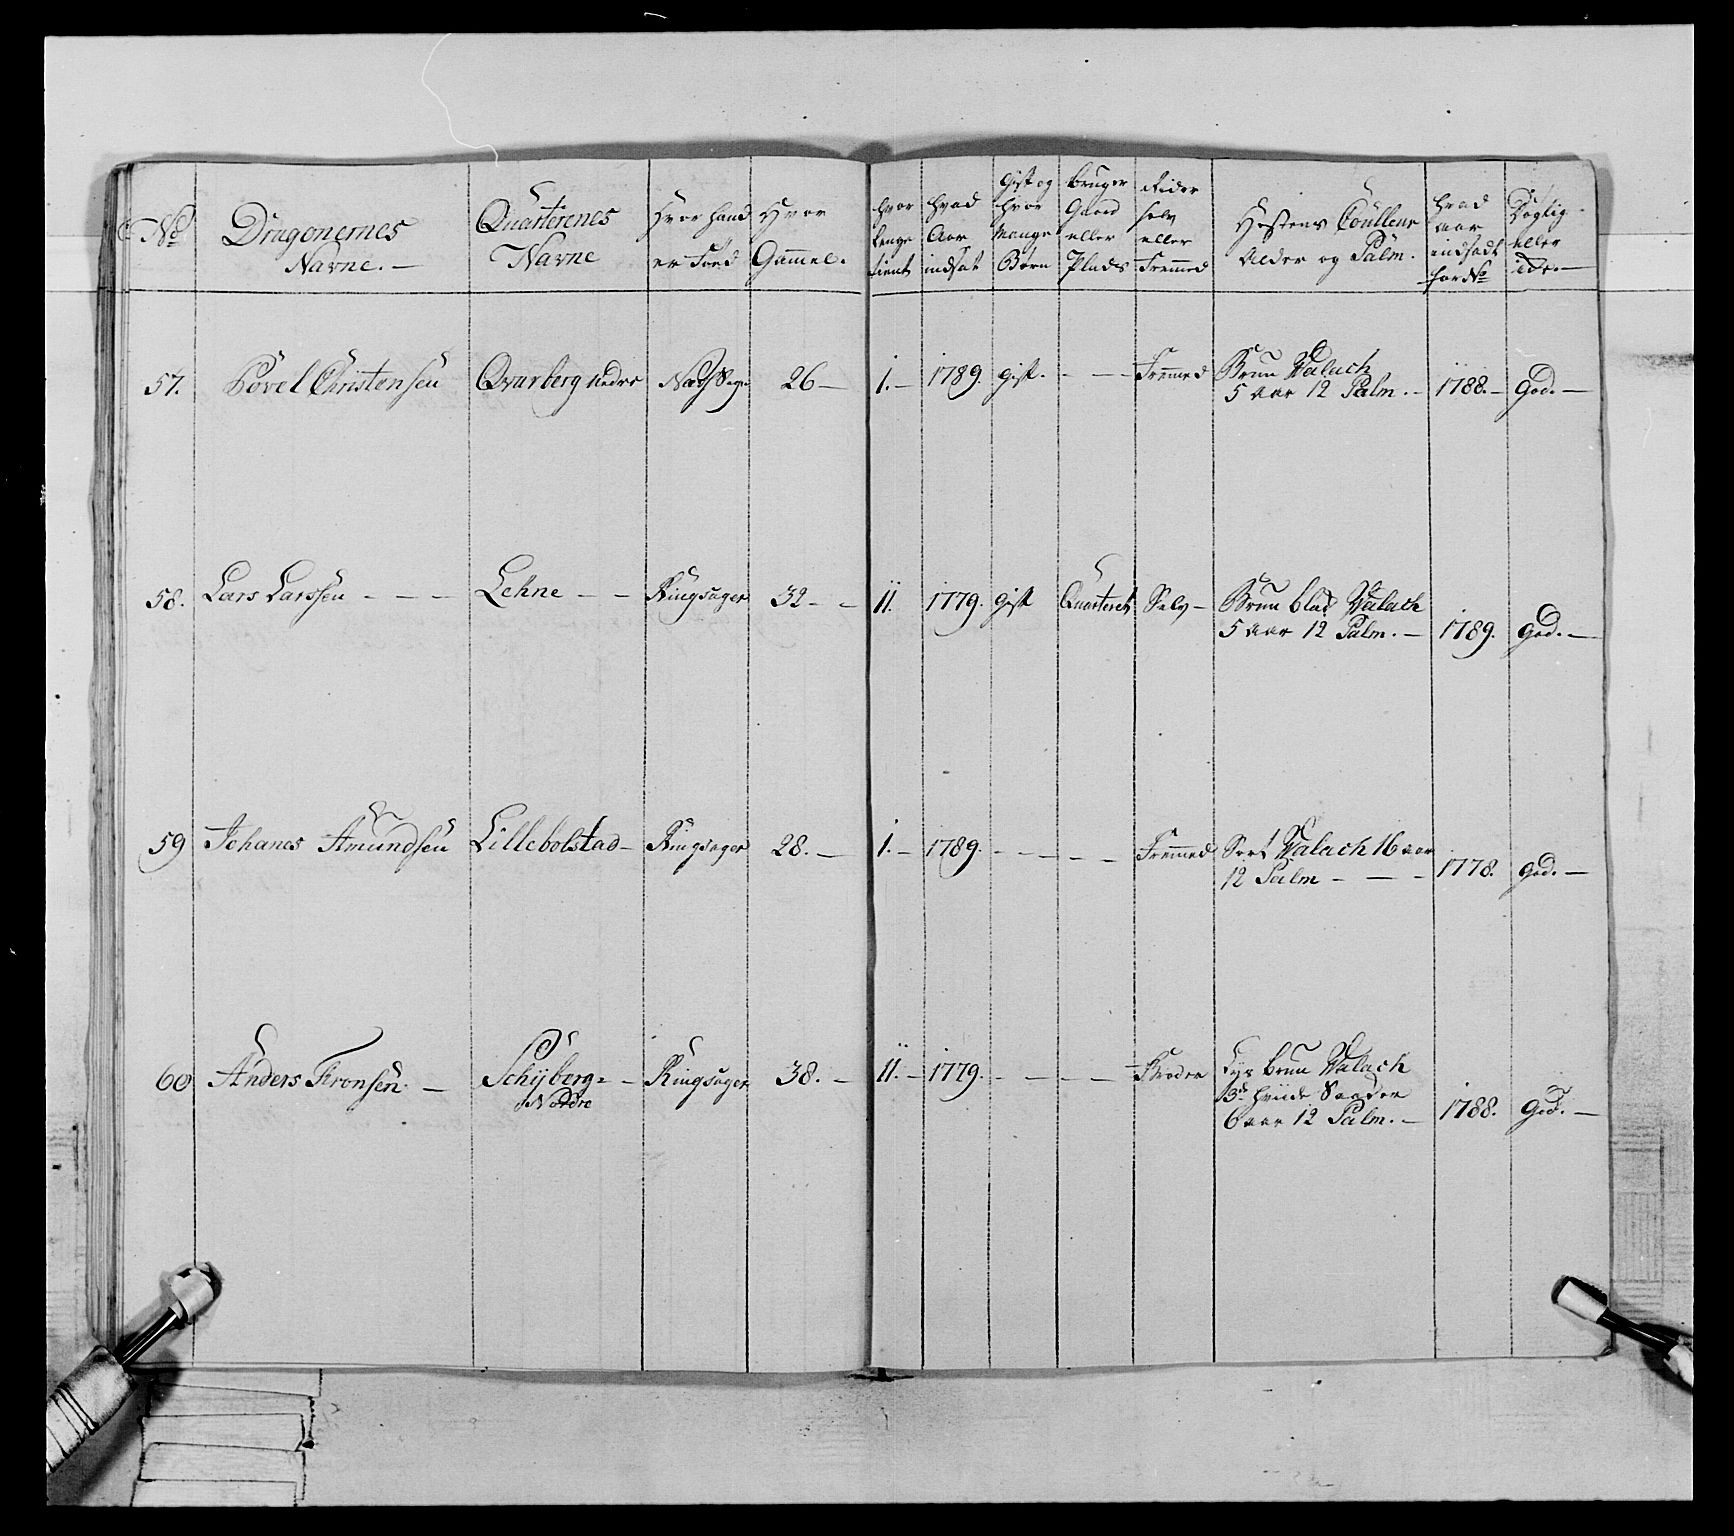 No
Dragonernes
Navne. —
Quarterenes
Navne
Hvor hand
er Föed
Hvor
Gammel.
hvor
lenge
tient
hvad
Aar
indsat
Gift og
hvor
mange
Börn
bruger
Gaard
eller
Plads
Rider
selv
eller
Fremmed
Hestens Coulleur
Alder og Palm.
hvad
aar
indsadt
for No
Dögtig
eller
57. Povel Christensen Qvarberg nedre 26 — 1. — 1789. gift. - - - Fremmed Brun Valach
5 aar 12 Palm. — 1788. — God. —
58. Lars Larssen - - - Lehne - - Ringsager 32 - - 11. 1779. gift Quarteret Selv — Brun blad Valach
5 aar 12 Palm. — 1789. god. —
59 Johanes Amundsen Lillebolstad — Ringsager 28. — 1. — 1789. - - - - - Fremmed Sort Valach 16 aar
12 Palm - - - 1778. god. —
60 Anders Fronsen. — Schyberg = - Ringsager 38. — 11. — 1779. - - - - Lys brun Valach
Nordre
6 aar 12 Palm. — 1788. God. —